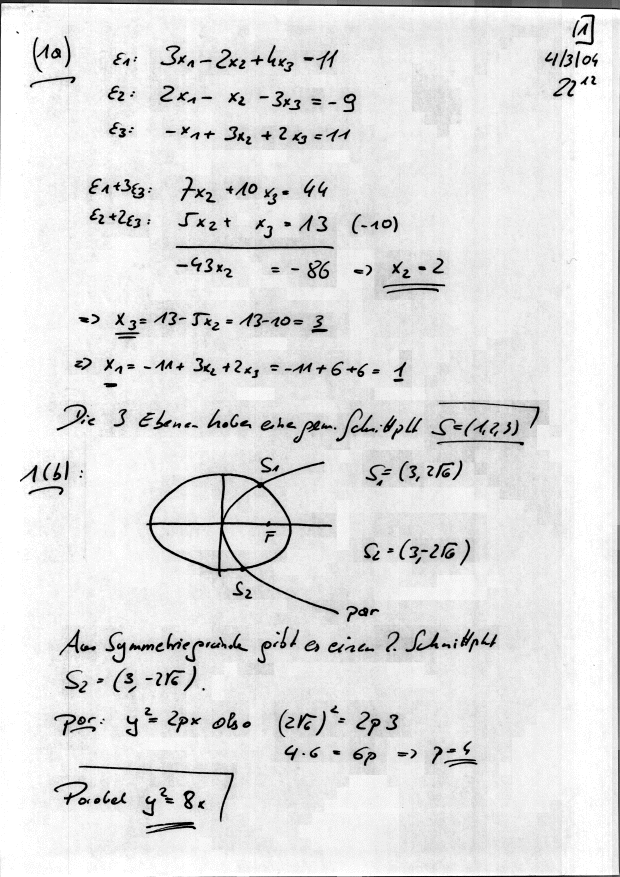 [1]
(1a) ε1: 3x1 - 2x2 + 4x3 = 11
4/3/04
22 12
ε2: 2x1 - x2 - 3x3 = -9
ε3: -x1 + 3x2 + 2x3 = 11
ε1+3ε3: 7x2 + 10x3 = 44
ε2+2ε3: 5x2 + x3 = 13 (-10)
-43x2 = -86 => x2 = 2
=> x3 = 13 - 5x2 = 13-10 = 3
=> x1 = -11 + 3x2 + 2x3 = -11 + 6 + 6 = 1
Die 3 Ebenen haben einen gem. Schnittpkt S = (1,2,3)
1(b):
S1
S1 = (3, 2√6)
F
S2 = (3, -2√6)
S2
par
Aus Symmetriegründen gibt es einen 2. Schnittpkt
S2 = (3, -2√6).
par: y² = 2px also (2√6)² = 2p3
4·6 = 6p => p = 4
Parabel y² = 8x